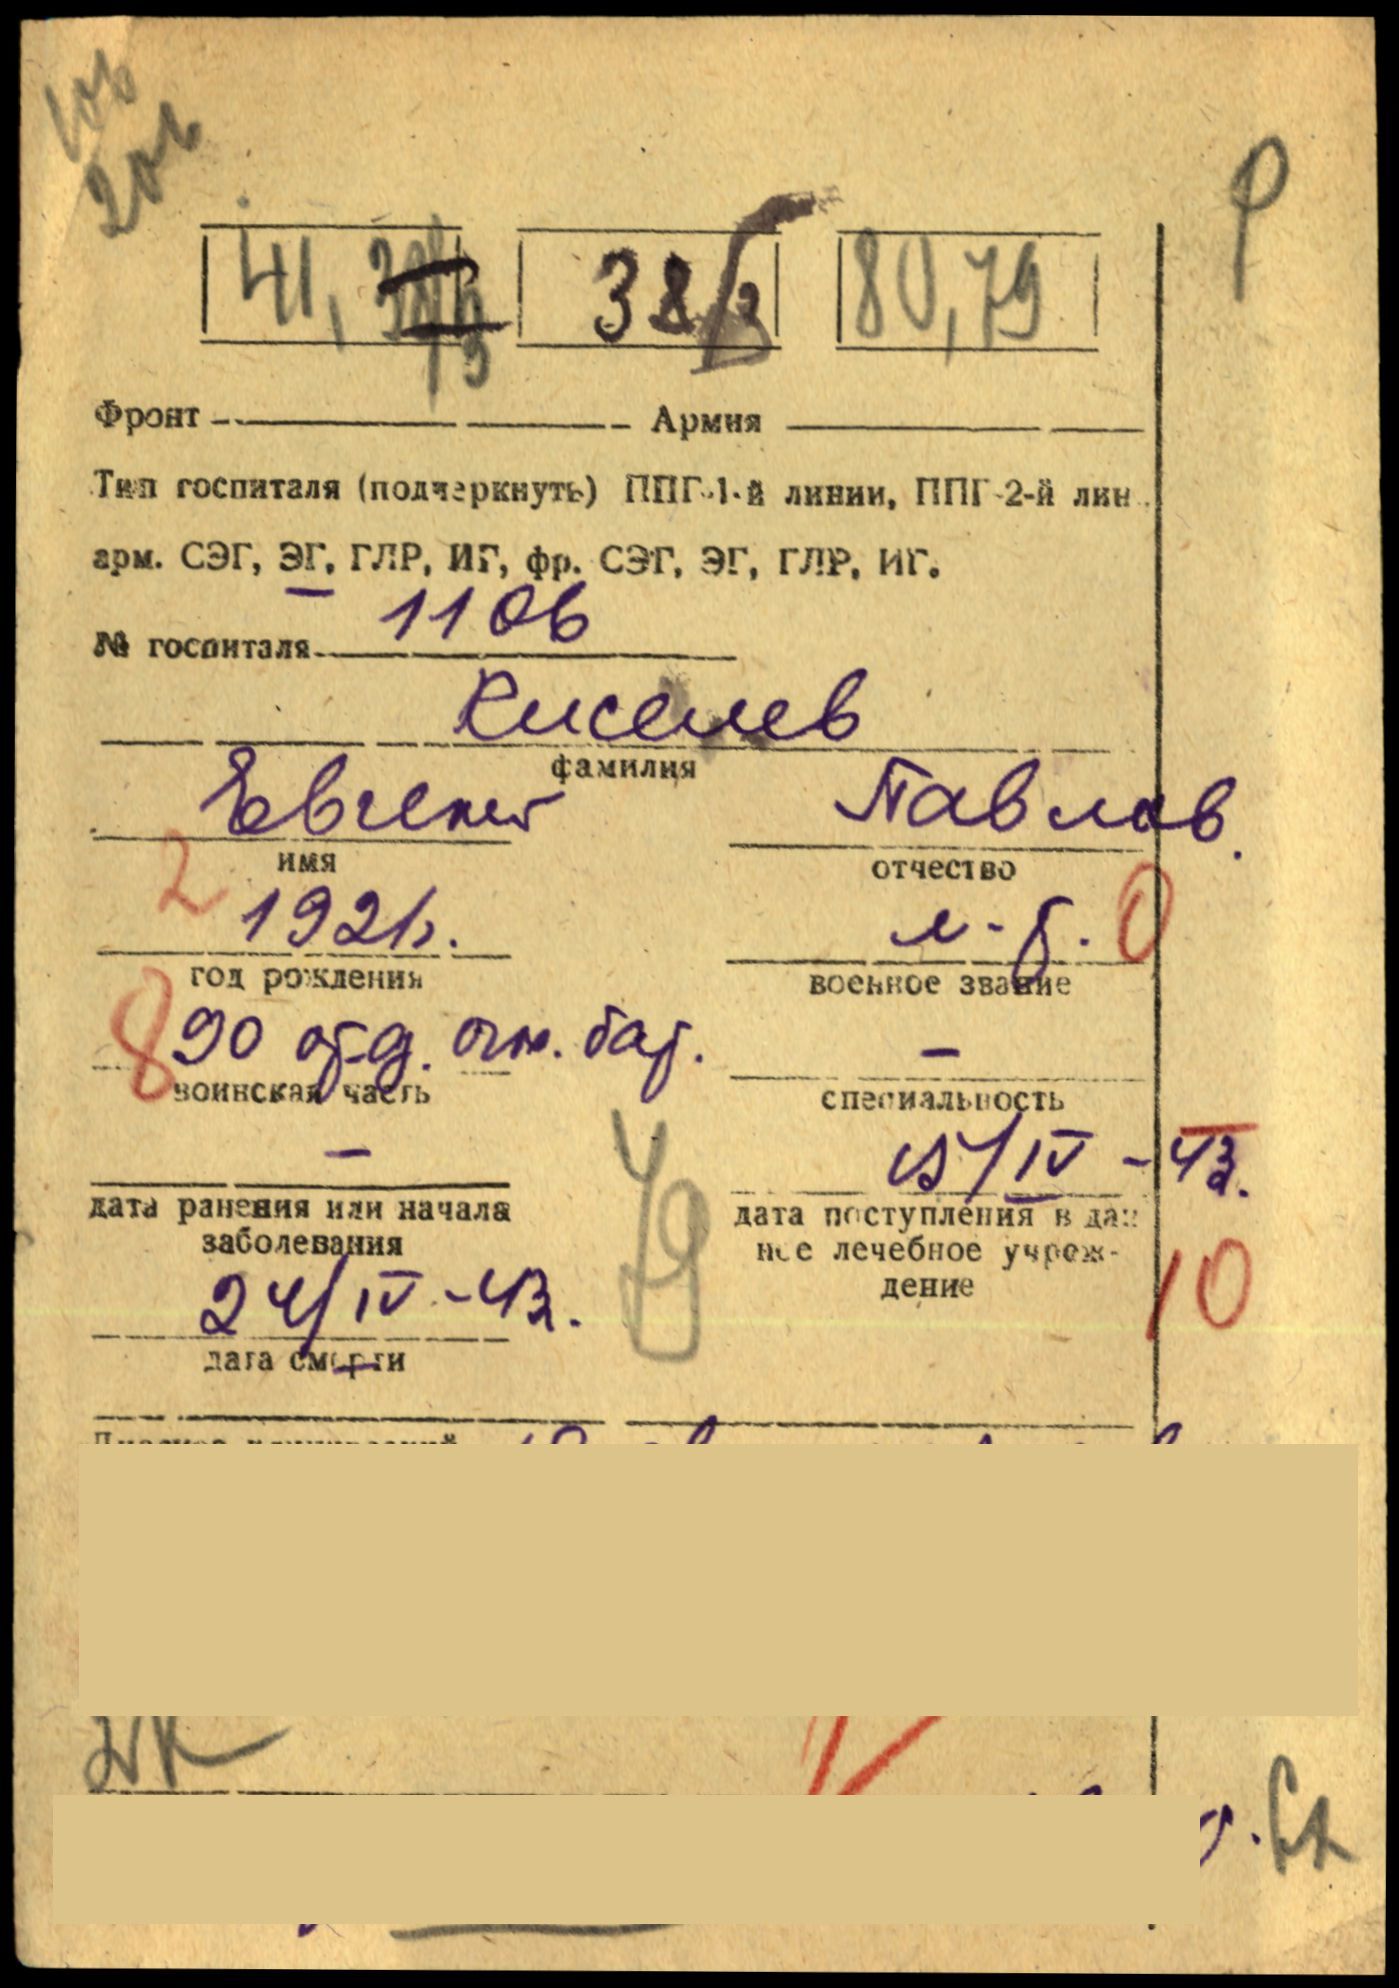 201
41, 38/3 38/2 80,79
Фронт Армия
Тип госпиталя (подчеркнуть) ППГ 1-й линии, ППГ 2-й лин.
арм. СЭГ, ЭГ, ГЛР, ИГ, фр. СЭГ, ЭГ, ГЛР, ИГ.
№ госпиталя 1106
Киселев
фамилия
Евгений Павлов.
имя отчество
2 1921г. 0
год рождения военное звание
8 90 отд. бат. –
воинская часть специальность
– 15/IV – 43.
дата ранения или начала
заболевания
дата поступления в дан
ное лечебное учреж-
дение
49 10
24/IV – 43.
дата смерти